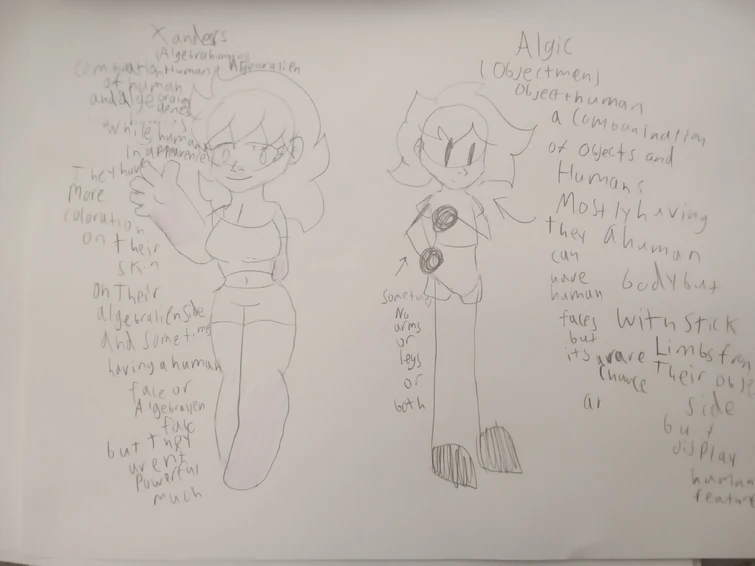 Xanders
(Algebrahumans)
combination Human + Algebralien
of human
and algebraien
genes
while human
In appearence
They have
More
coloration
on their
skin
on Their
algebralien side
And sometimes
having a human
face or
Algebraien
face
but they
arent
Powerful
much
Algic
(Objectmen)
Object+human
a Combunination
of objects and
Humans
Mostly having
a human
body but
with stick
Limbs from
Their obje
side
but
display
human
feature
they
can
have
human
faces
but
its a rare
Chance
ar
Someting
No
arms
or
legs
or
both